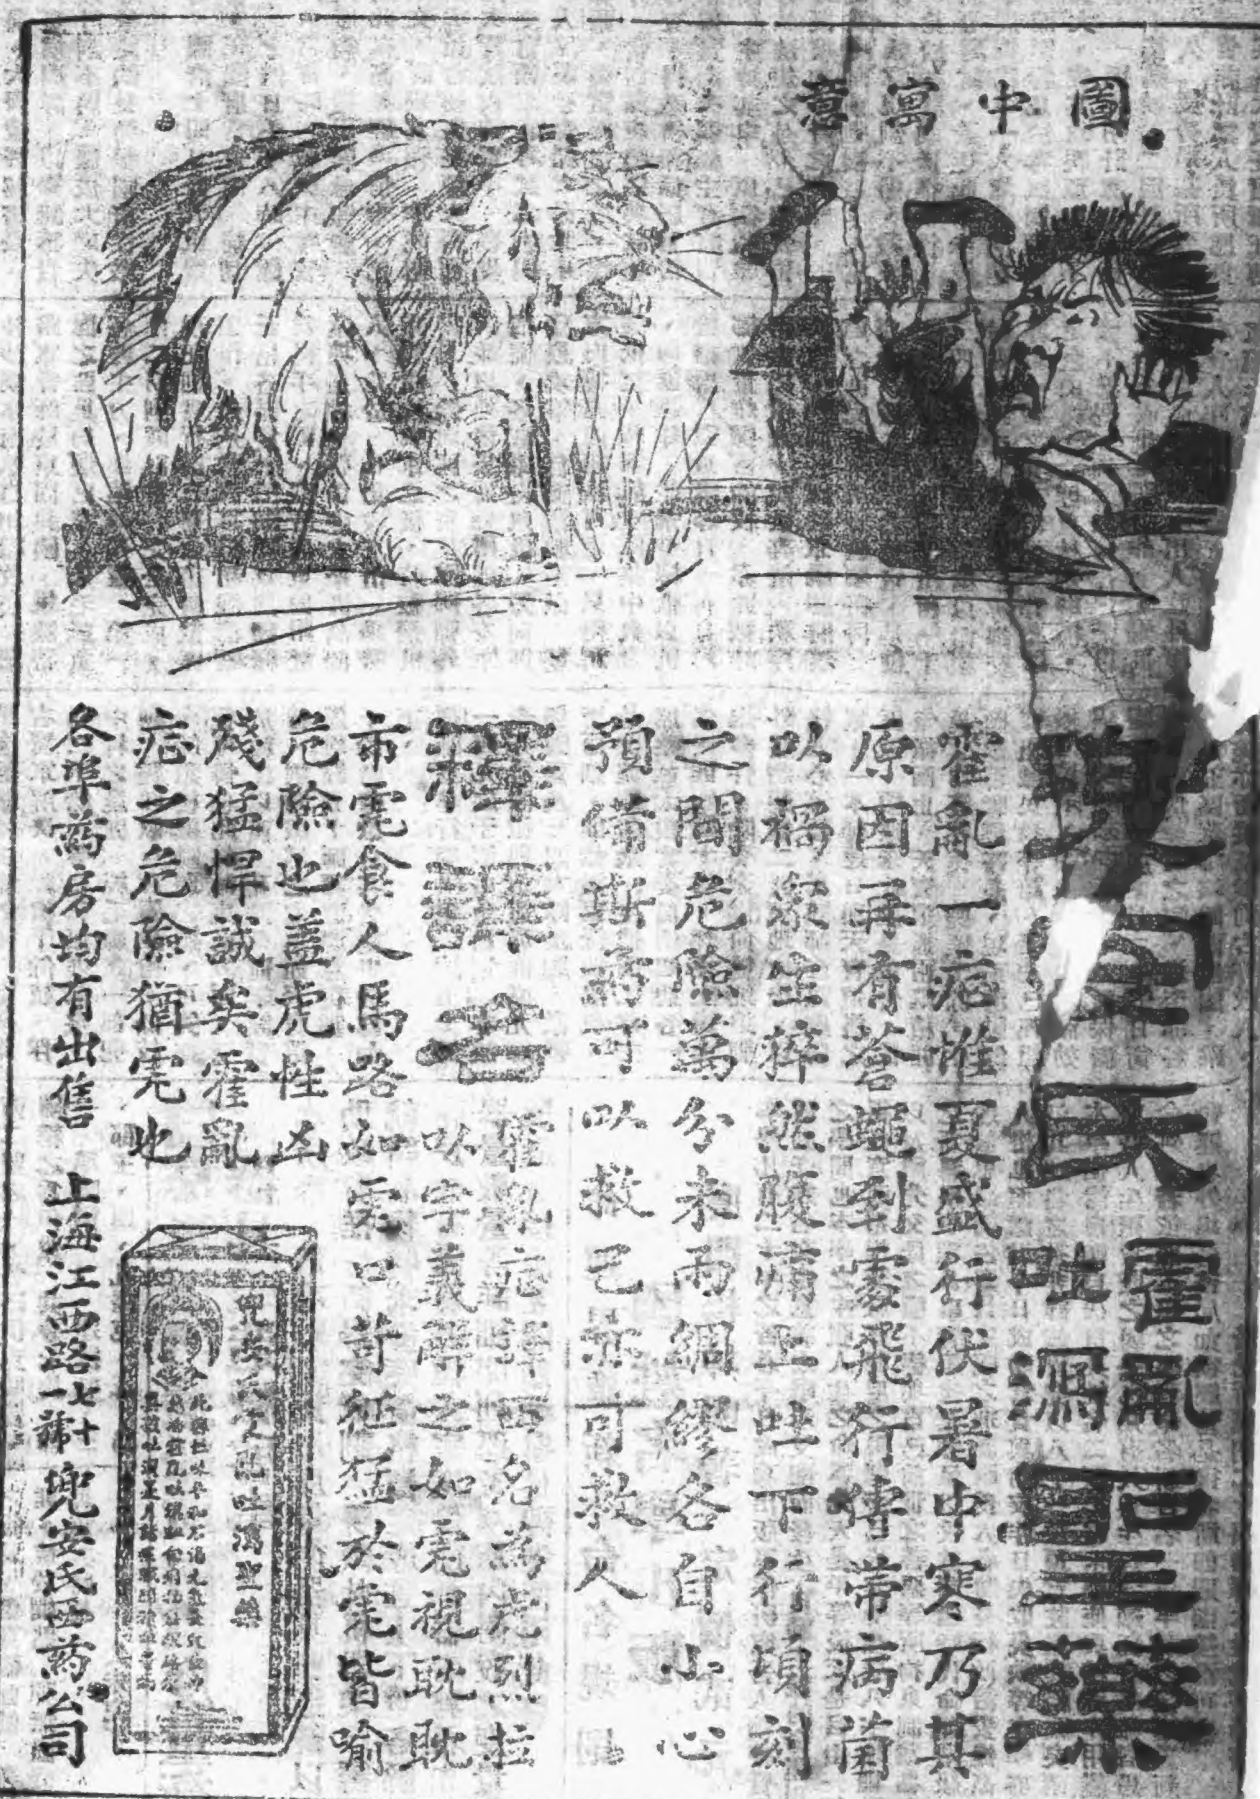 圖中寓意
兜安氏霍亂吐瀉聖藥
霍亂一症惟夏盛行伏暑中寒乃其
原因再有蒼蠅到處飛行傳帶病菌
以禍衆生猝然腹痛上吐下行頃刻
之間危險萬分未雨綢繆各自小心
預備斯葯可以救己亦可救人
釋譯名
霍亂症譯西名為虎烈拉
以字義解之如虎視眈眈
市虎食人馬路如虎口苛征猛於虎皆喻
危險也蓋虎性凶
殘猛悍誠矣霍亂
症之危險猶虎也
兜安氏霍亂吐瀉聖藥
各埠葯房均有出售 上海江西路七十一號 兜安氏西葯公司